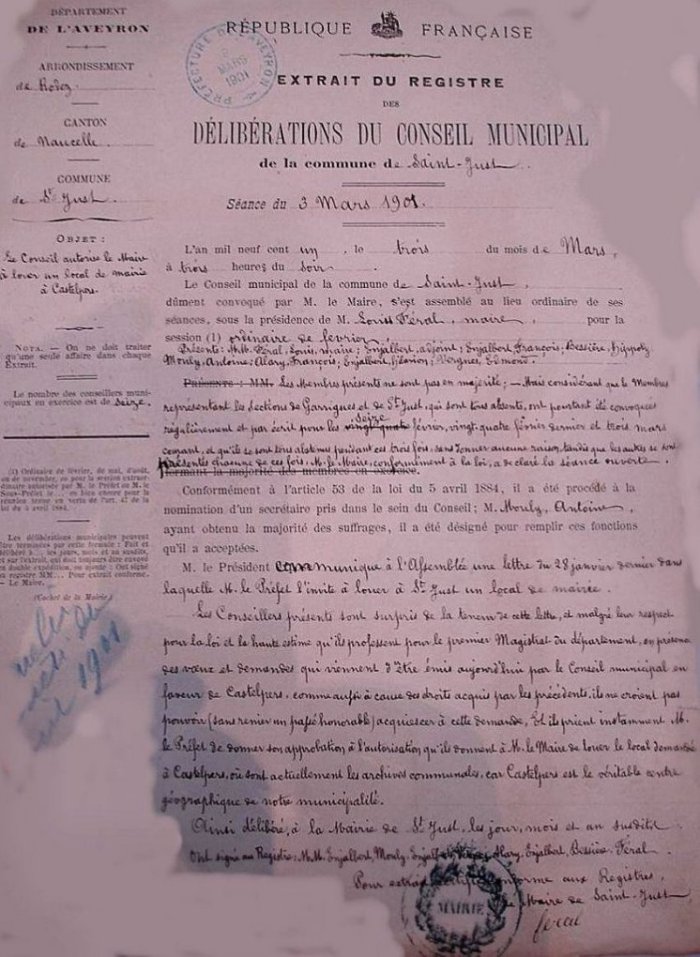 DÉPARTEMENT
DE L'AVEYRON
ARRONDISSEMENT
de Rodez
CANTON
de Naucelle
COMMUNE
de St Just
OBJET :
Le Conseil autorise le Maire
à louer un local de mairie
à Castelpers.
NOTA. — On ne doit traiter
qu'une seule affaire dans chaque
Extrait.
Le nombre des conseillers muni-
cipaux en exercice est de seize.
(1) Ordinaire de février, de mai, d'août,
ou de novembre, ou pour la session extraor-
dinaire autorisée par M. le Préfet ou M. le
Sous-Préfet le ... ou bien encore pour la
réunion tenue en vertu de l'art. 47 de la
loi du 5 avril 1884.
Les délibérations municipales peuvent
être terminées par cette formule : Fait et
délibéré à ... les jours, mois et an susdits,
et sur l'extrait, qui doit toujours être envoyé
en double expédition, on ajoute : Ont signé
au registre MM... Pour extrait conforme.
— Le Maire,
(Cachet de la Mairie)
1901
RÉPUBLIQUE FRANÇAISE
PRÉFECTURE DE L'AVEYRON
MARS
1901
EXTRAIT DU REGISTRE
DES
DÉLIBÉRATIONS DU CONSEIL MUNICIPAL
de la commune de Saint-Just
Séance du 3 Mars 1901.
L'an mil neuf cent un, le trois du mois de Mars,
à trois heures du soir
Le Conseil municipal de la commune de Saint-Just,
dûment convoqué par M. le Maire, s'est assemblé au lieu ordinaire de ses
séances, sous la présidence de M. Louis Féral, maire, pour la
session (1) ordinaire de février,
Présents : M.M. Féral, Louis, maire ; Enjalbert, adjoint ; Enjalbert, François ; Bessière, Hippoly.
Mouly, Antoine ; Alary, François ; Enjalbert, ; Vergnes, Edmond.
Présents : MM. Les Membres présents ne sont pas en majorité ; — Mais considérant que les Membres
représentant les Sections de Garrigues et de St Just, qui sont tous absents, ont pourtant été convoqués
régulièrement et par écrit pour les vingt quatre Seize février, vingt quatre février dernier et trois mars
courant, et qu'ils se sont tous abstenus pendant ces trois fois, sans donner aucune raison, tandis que les autres se sont
présentés chacune de ces fois, M. le Maire, conformément à la loi, a déclaré la séance ouverte.
formant la majorité des membres en exercice.
Conformément à l'article 53 de la loi du 5 avril 1884, il a été procédé à la
nomination d'un secrétaire pris dans le sein du Conseil ; M. Mouly, Antoine,
ayant obtenu la majorité des suffrages, il a été désigné pour remplir ces fonctions
qu'il a acceptées.
M. le Président communique à l'Assemblée une lettre du 28 janvier dernier dans
laquelle M. le Préfet l'invite à louer à St Just un local de mairie.
Les Conseillers présents sont surpris de la teneur de cette lettre, et malgré leur respect
pour la loi et la haute estime qu'ils professent pour le premier Magistrat du département, en présence
des vœux et demandes qui viennent d'être émis aujourd'hui par le Conseil municipal en
faveur de Castelpers, comme aussi à cause des droits acquis par les précédents, ils ne croient pas
pouvoir (sans renier un passé honorable) acquiescer à cette demande, Et ils prient instamment M.
le Préfet de donner son approbation à l'autorisation qu'ils donnent à M. le Maire de louer le local demandé
à Castelpers, où sont actuellement les archives communales, car Castelpers est le véritable centre
géographique de notre municipalité.
Ainsi délibéré, à la Mairie de St Just, les jour, mois et an susdits
Ont signé au Registre : M.M. Enjalbert, Mouly, Alary, Enjalbert, Bessière, Féral.
Pour extrait certifié conforme aux Registres,
Maire de Saint-Just
MAIRIE
Féral